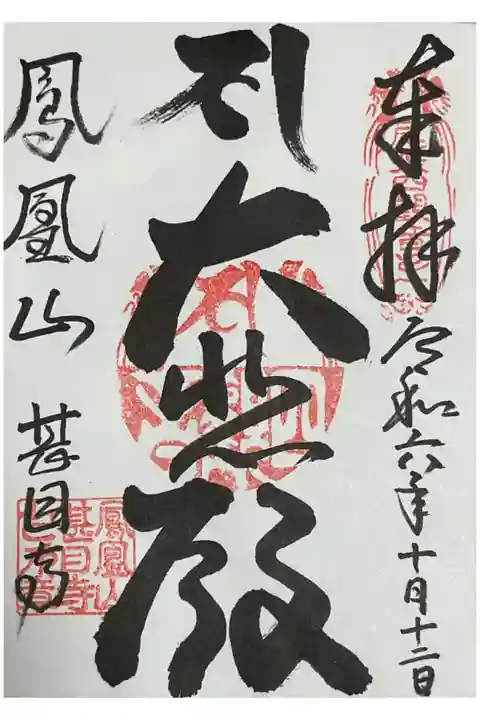 奉拝 令和六年十月十二日
大悲殿
鳳凰山 甚目寺
鳳凰山
甚目寺